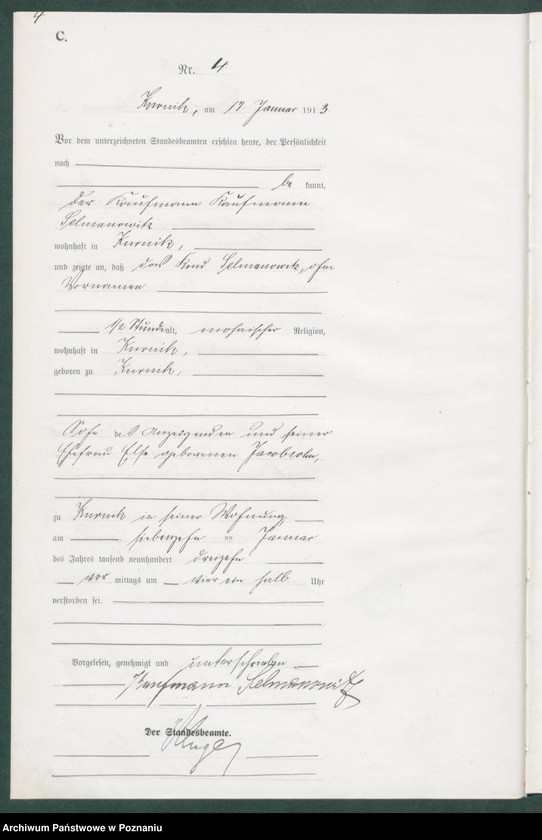 4
C.
Nr. 4
Kurnik, am 17 Januar 1913
Vor dem unterzeichneten Standesbeamten erschien heute, der Persönlichkeit
nach
be kannt,
der Kaufmann Kaufmann
Selmanowitz
wohnhaft in Kurnik,
und zeigte an, daß das Kind Selmanowitz, ohne
Vornamen
1/2 Stunde alt, mosaischer Religion,
wohnhaft in Kurnik,
geboren zu Kurnik,
Sohn des Anzeigenden und seiner
Ehefrau Else geborenen Jacobsohn,
zu Kurnik in seiner Wohnung
am siebenzehn ten Januar
des Jahres tausend neunhundert dreizehn
vor mittags um vier ein halb Uhr
verstorben sei.
Vorgelesen, genehmigt und unterschrieben
Kaufmann Selmanowitz
Der Standesbeamte.
Archiwum Państwowe w Poznaniu